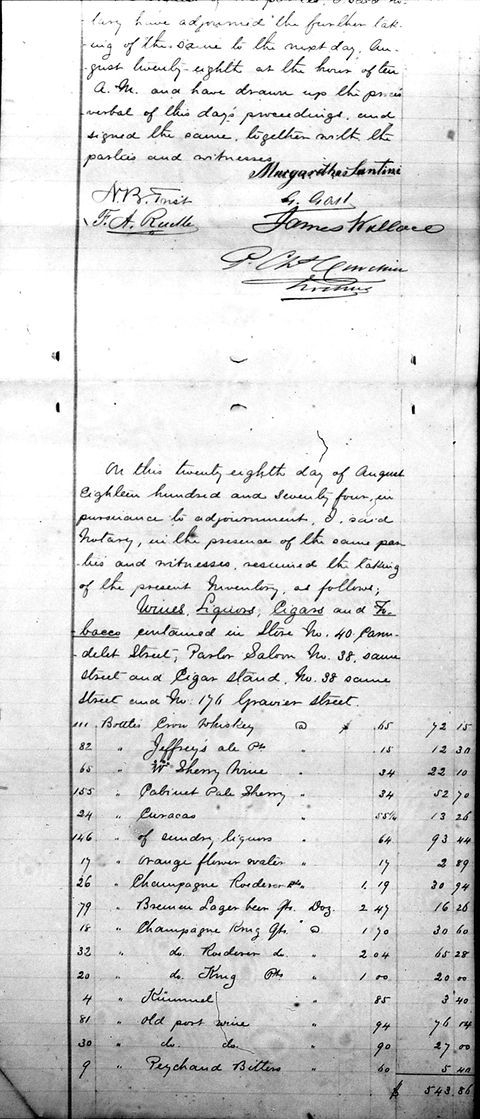 tary have adjourned the further tak-
ing of the same to the next day, Au-
gust twenty-eighth at the hour of ten
A.M. and have drawn up the procès
verbal of this day's proceedings, and
signed the same, together with the
parties and witnesses.
Margaritha Santini
N.B. Trist
G. Gast
F. A. Ruelle
James Wallace
P. Chs
On this twenty eighth day of August
Eighteen hundred and seventy four, in
pursuance to adjournment, I, said
Notary, in the presence of the same par-
ties and witnesses, resumed the taking
of the present Inventory, as follows;
Wines, Liquors, Cigars and To-
bacco contained in Store No. 40 Caron-
delet Street, Parlor Saloon No. 38, same
street and Cigar Stand, No. 38 same
street and No. 176 Gravier Street.
111 Bottles Crow Whiskey @ $ 65 72 15
82 " Jeffrey's ale Pts " 15 12 30
65 " W Sherry Wine " 34 22 10
155 " Cabinet Pale Sherry " 34 52 70
24 " Curacao " 55¼ 13 26
146 " of sundry liquors " 64 93 44
17 " Orange flower water " 17 2 89
26 " Champagne Roederer Pts " 1 19 30 94
79 " Bremen Lager beer Qts. Doz. 2 47 16 26
18 " Champagne Krug Qts. @ 1 70 30 60
32 " do. Roederer do. " 2 04 65 28
20 " do. Krug Pts " 1 00 20 00
4 " Kummel " 85 3 40
81 " old port wine " 94 76 14
30 " do. do. " 90 27 00
9 " Peychaud Bitters " 60 5 40
$ 543 86